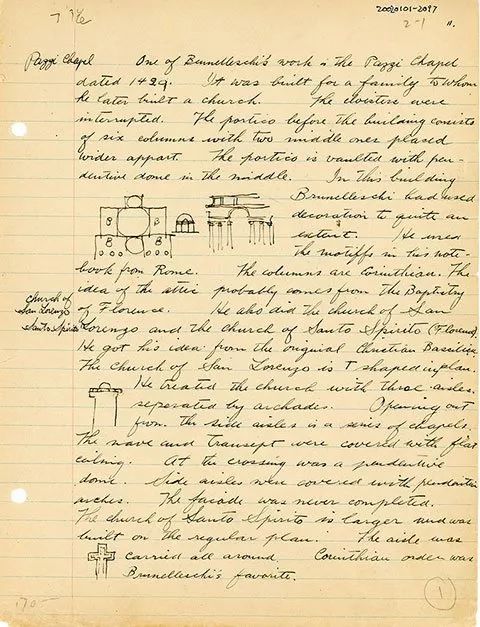 7 3/6
2020101-2097
2-1 11.
Pazzi Chapel
One of Brunelleschi's work is the Pazzi Chapel
dated 1429. It was built for a family to whom
he later built a church. The cloisters were
interrupted. The portico before the building consists
of six columns with two middle ones placed
wider appart. The portico is vaulted with pen-
dentive dome in the middle. In this building
Brunelleschi had used
decoration to quite an
extent. He used
the motiffs in his note-
book from Rome. The columns are Corinthian. The
idea of the attic probably comes from the Baptistry
of Florence. He also did the church of San
Church of
San Lorenzo
Santo Spirito
Lorenzo and the church of Santo Spirito (Florence).
He got his idea from the original Christian Basilica
The church of San Lorenzo is T shaped in plan.
He treated the church with three aisles
seperated by archades. Opening out
from the side aisles is a series of chapels.
The nave and transept were covered with flat
ceiling. At the crossing was a pendentive
dome. Side aisles were covered with pendentive
arches. The facade was never completed.
The church of Santo Spirito is larger and was
built on the regular plan. The aisle was
carried all around Corinthian order was
Brunelleschi's favorite.
170-
1